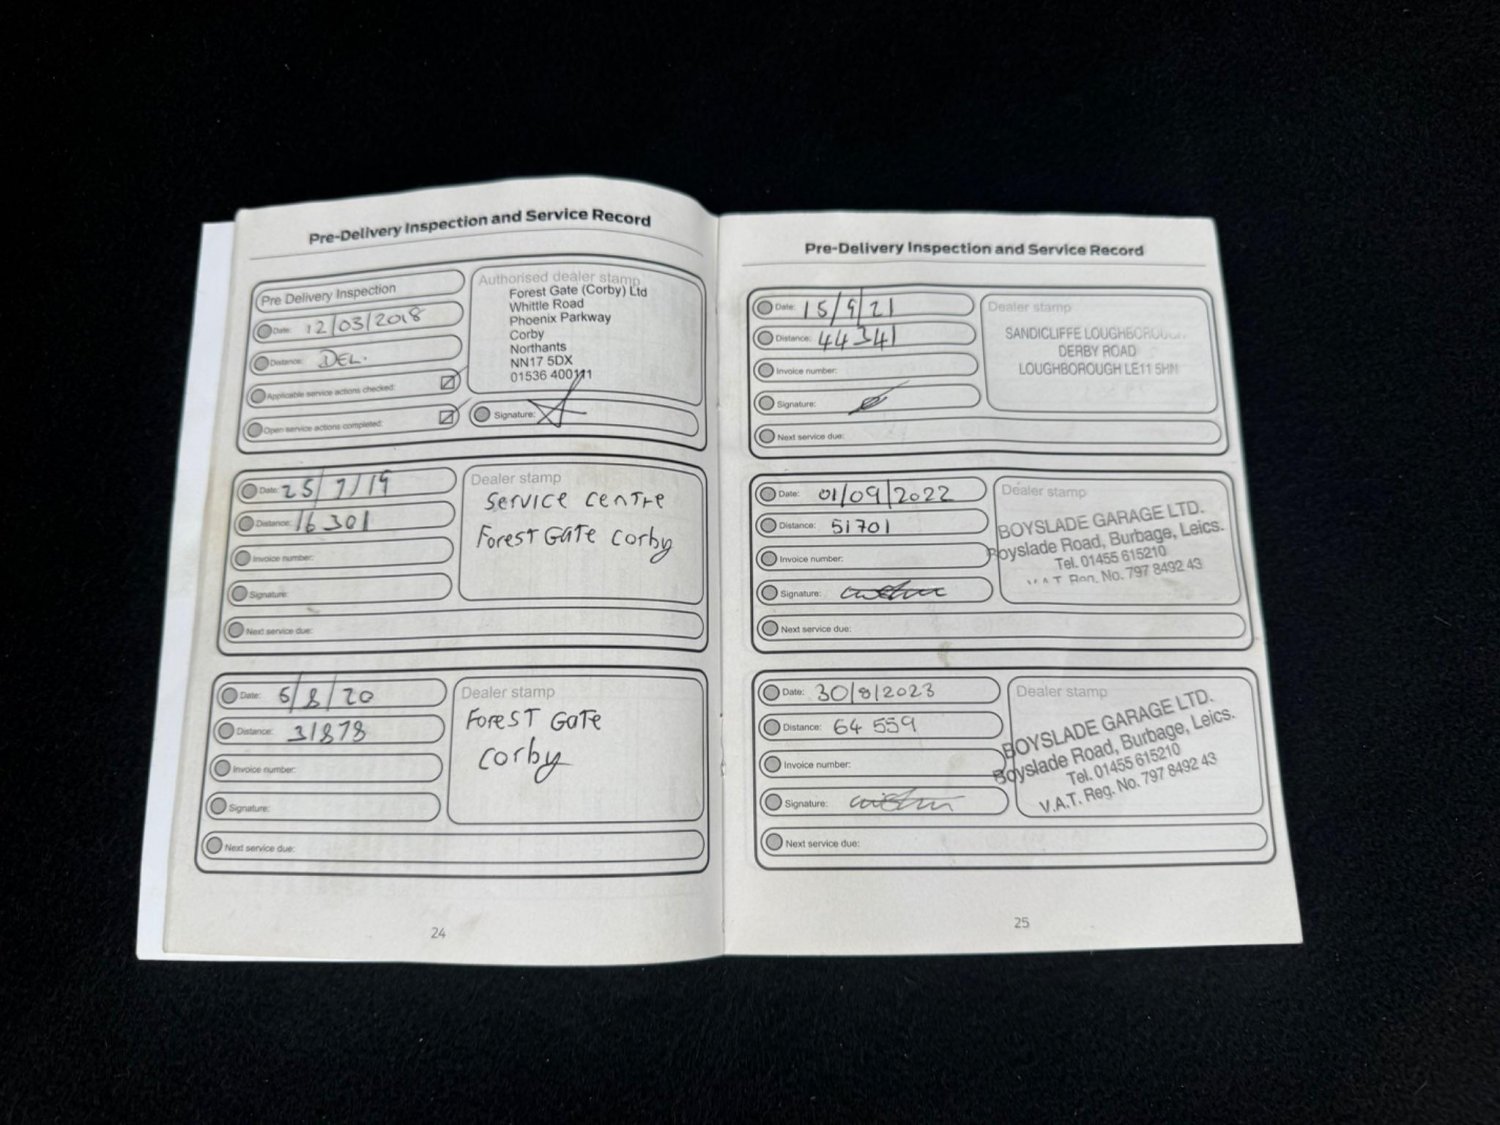 Pre-Delivery Inspection and Service Record
Pre Delivery Inspection
Date: 12/03/2018
Distance: DEL.
Applicable service actions checked:
Open service actions completed:
Authorised dealer stamp
Forest Gate (Corby) Ltd
Whittle Road
Phoenix Parkway
Corby
Northants
NN17 5DX
01536 400111
Signature:
Date: 25/7/19
Distance: 16301
Invoice number:
Signature:
Next service due:
Dealer stamp
Service Centre
Forest Gate Corby
Date: 6/8/20
Distance: 31878
Invoice number:
Signature:
Next service due:
Dealer stamp
Forest Gate
Corby
24
Pre-Delivery Inspection and Service Record
Date: 15/9/21
Distance: 44341
Invoice number:
Signature:
Next service due:
Dealer stamp
SANDICLIFFE LOUGHBOROUGH
DERBY ROAD
LOUGHBOROUGH LE11 5HN
Date: 01/09/2022
Distance: 51701
Invoice number:
Signature:
Next service due:
Dealer stamp
BOYSLADE GARAGE LTD.
Boyslade Road, Burbage, Leics.
Tel. 01455 615210
V.A.T. Reg. No. 797 8492 43
Date: 30/8/2023
Distance: 64 559
Invoice number:
Signature:
Next service due:
Dealer stamp
BOYSLADE GARAGE LTD.
Boyslade Road, Burbage, Leics.
Tel. 01455 615210
V.A.T. Reg. No. 797 8492 43
25